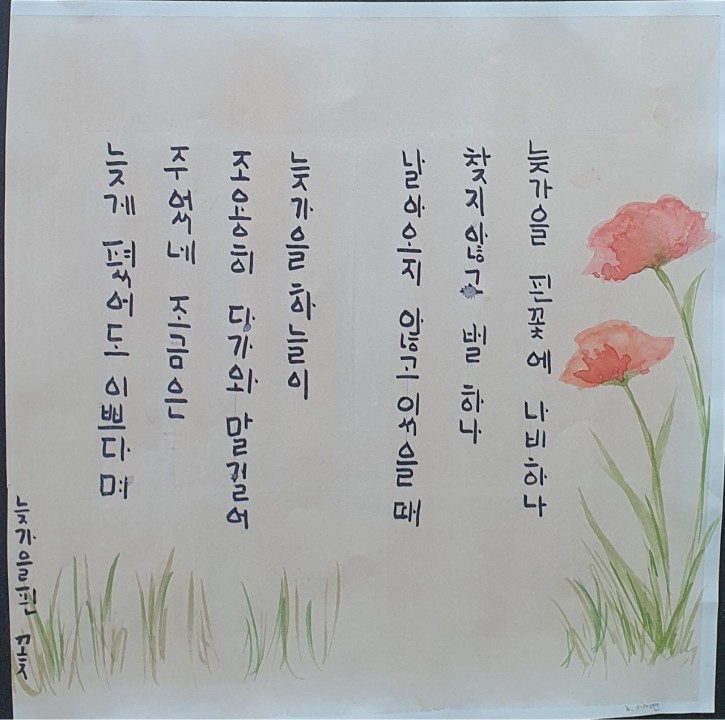 늦가을 핀꽃에 나비하나
찾지않고 벌 하나
날아오지 않고 있을 때
늦가을하늘이
조용히 다가와 말걸어
주었네 조금은
늦게 폈어도 이쁘다며
늦가을핀 꽃